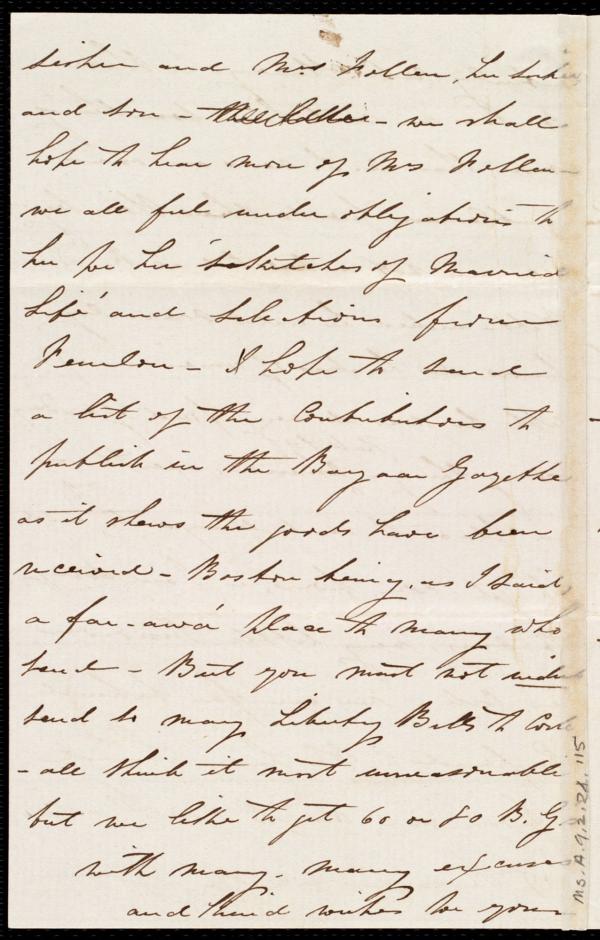 sister and Mrs Follen, her sister
and son - we shall
hope to hear more of Mrs Follen -
we all feel under obligations to
her for her 'sketches of Married
Life' and selections from
Fenelon - I hope to send
a list of the Contributors to
publish in the Bazaar Gazette
as it shews the goods have been
received - Boston being, as I said,
a far-awa' place to many who
send - But you must not
send so many Liberty Bells to Cork
- all think it most unreasonable
but we like to get 60 or 80 B. G.
with many, many excuses
and kind wishes to you
Ms. A. 9. 2. 24, 115